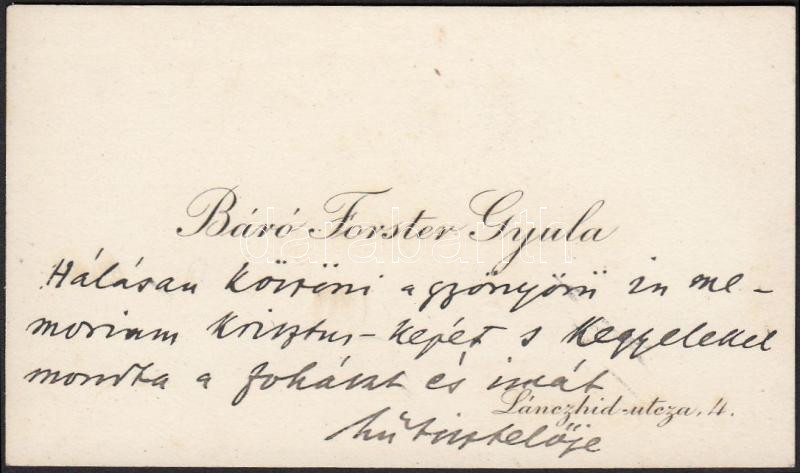 Báró Forster Gyula
darabanth
Hálásan köszöni a gyönyörű in me-
moriam Krisztus-képet s kegyelettel
mondta a fohászt és imát
Lánczhid-utcza, 4.
hű tisztelője